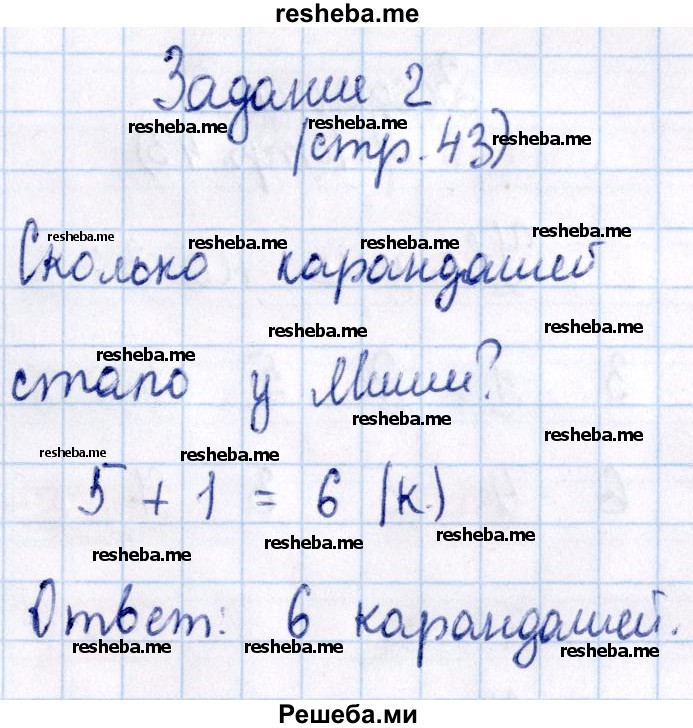 resheba.me
Задание 2
resheba.me resheba.me resheba.me
(стр. 43)
resheba.me resheba.me resheba.me resheba.me
Сколько карандашей
resheba.me resheba.me resheba.me
стало у Миши?
resheba.me resheba.me
resheba.me resheba.me
5 + 1 = 6 (к.)
resheba.me resheba.me resheba.me
Ответ: 6 карандашей.
resheba.me resheba.me resheba.me
Решеба.ми